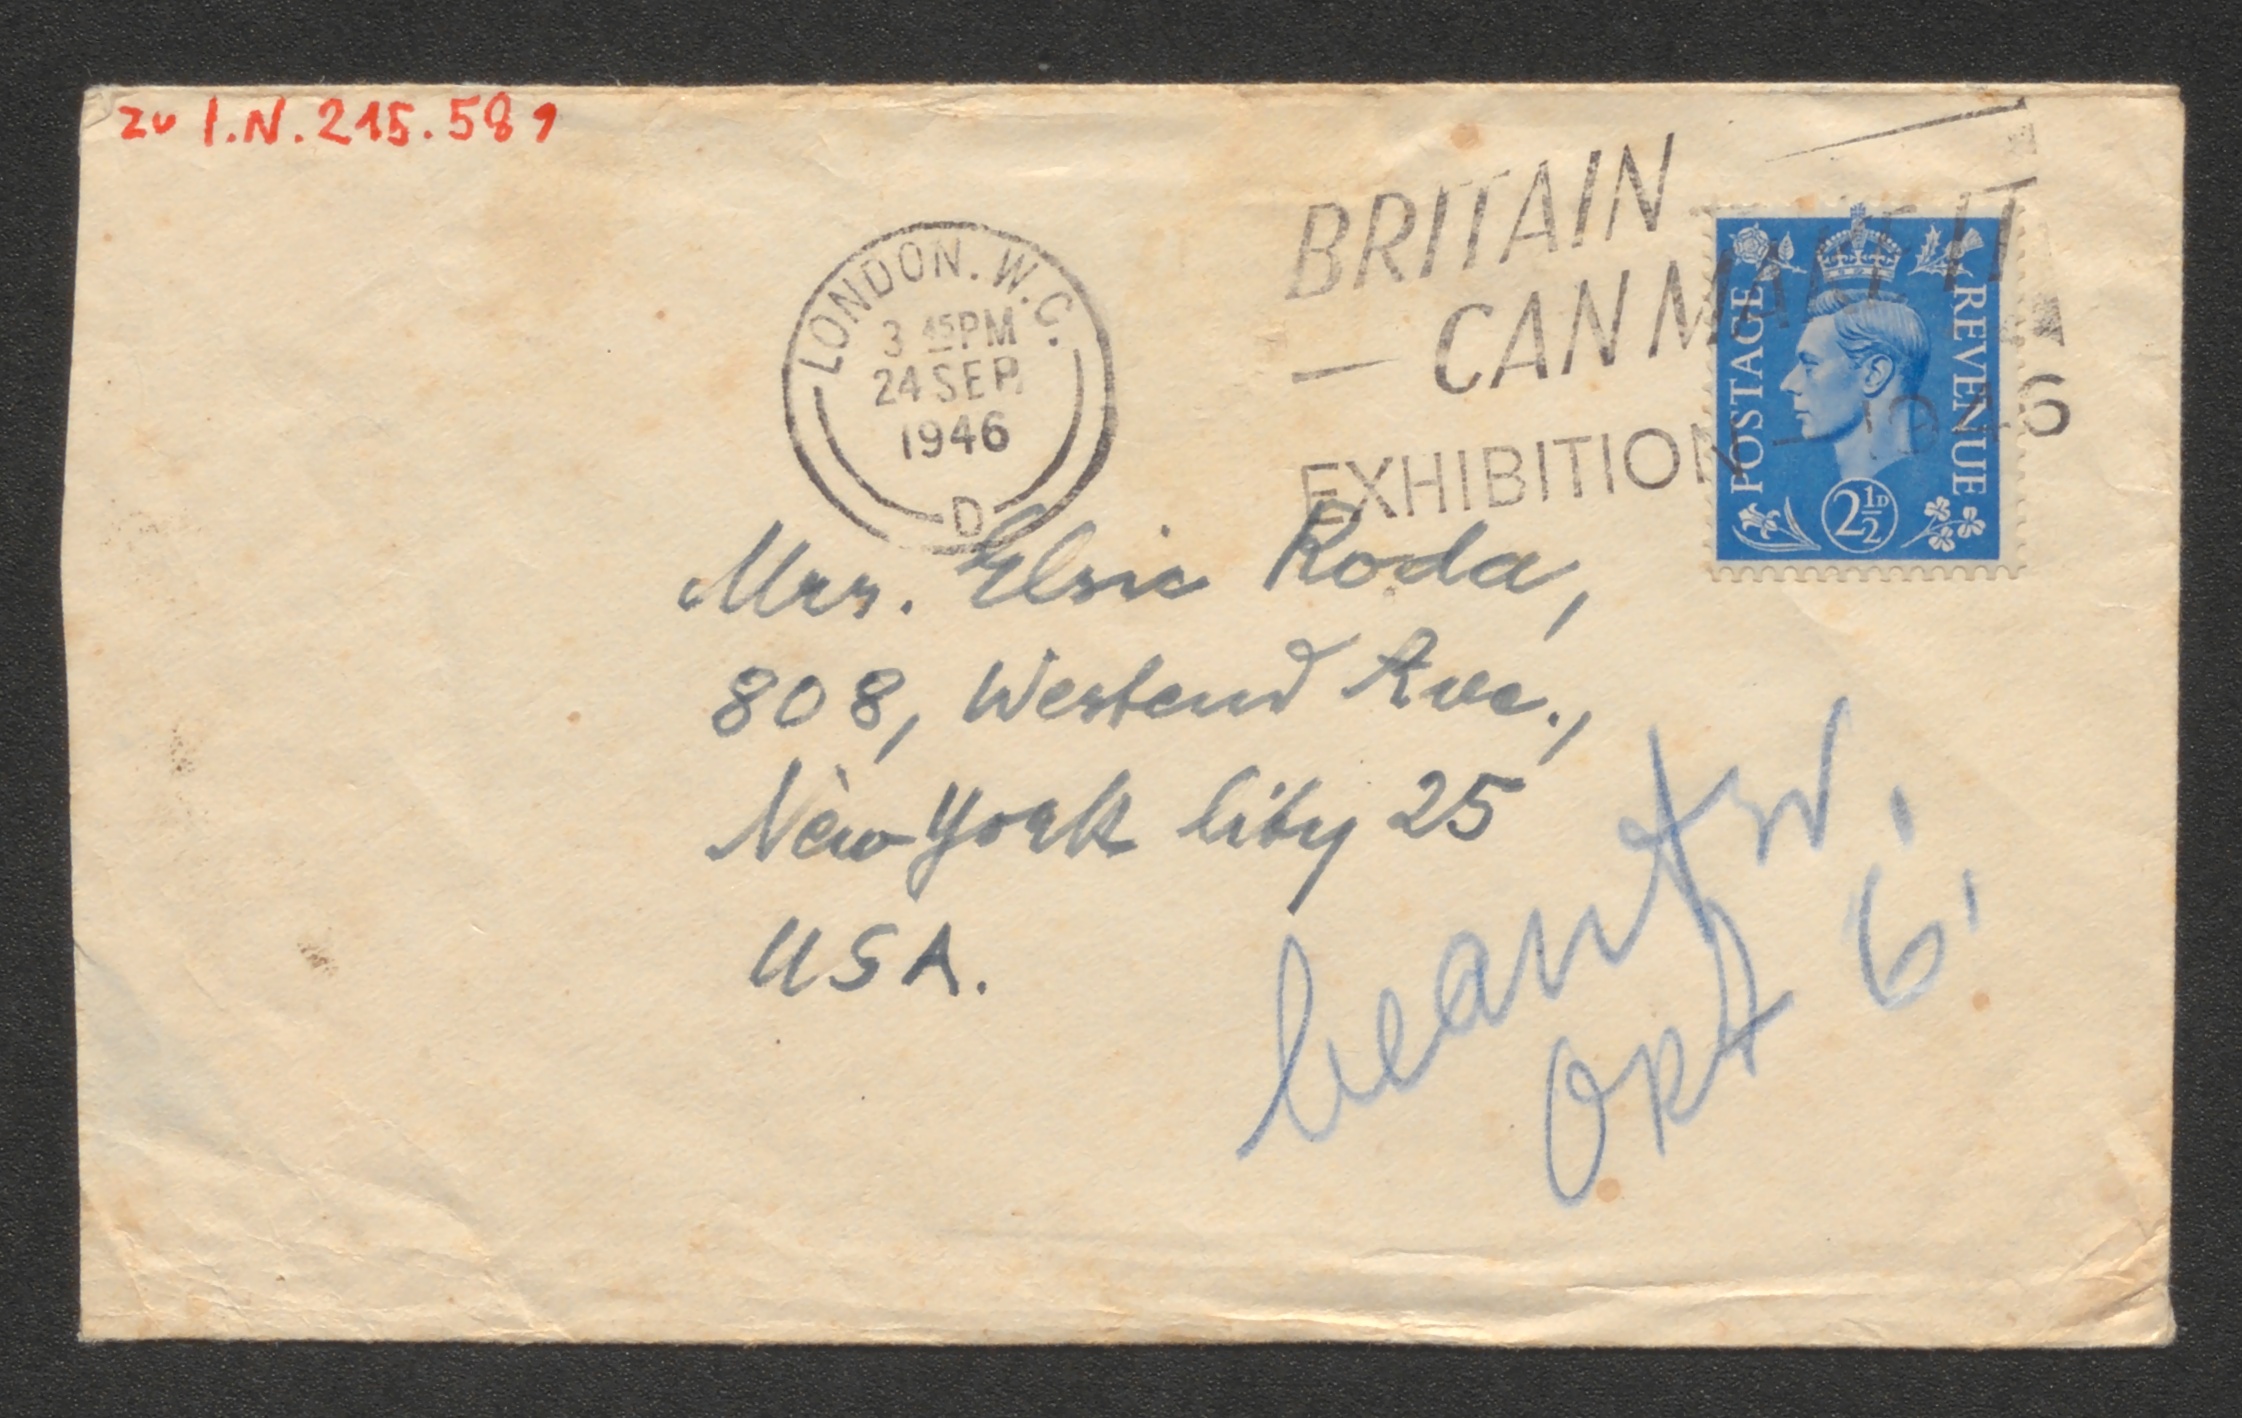 zu I.N. 215.589
LONDON. W.C.
3 45 PM
24 SEP
1946
D
BRITAIN
CAN MAKE IT
EXHIBITION - 1946
POSTAGE
REVENUE
2½D
Mrs. Elsie Roda,
808, Westend Ave.,
New York City 25
USA.
beantw.
Okt 6.